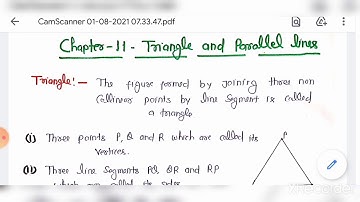 CamScanner 01-08-2021 07.33.47.pdf
Chapter-11 - Triangle and Parallel lines
Triangle:- The figure formed by joining three non
Collinear points by line segment is called
a triangle
(i) Three points P, Q and R which are called its
vertices.
P
(ii) Three line Segments PQ, QR and RP
which are called its sides